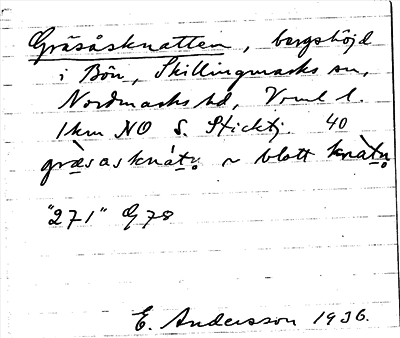 Gräsåsknatten, bergshöjd
i Bön, Skillingmarks sn,
Nordmarks hd, Vrml l.
1 km NO S. Sticktj. 40
gräsasknátn ~ blott knàtn
"271" G78
E. Andersson 1936.